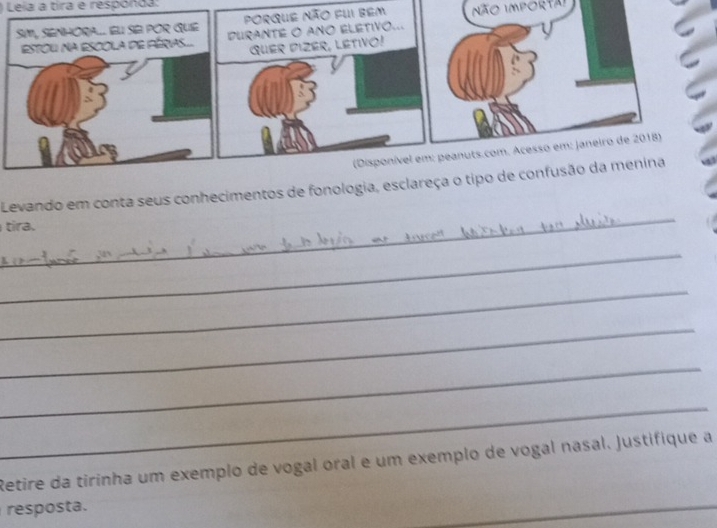 Leia a tira e responda:
SIM, SENHORA... EU SEI POR QUE
ESTOU NA ESCOLA DE FÉRIAS...
PORQUE NÃO FUI BEM
DURANTE O ANO ELETIVO...
QUER DIZER, LETIVO!
NÃO IMPORTA!
(Disponível em: peanuts.com. Acesso em: Janeiro de 2018)
Levando em conta seus conhecimentos de fonologia, esclareça o tipo de confusão da menina
tira.
Retire da tirinha um exemplo de vogal oral e um exemplo de vogal nasal. Justifique a
resposta.